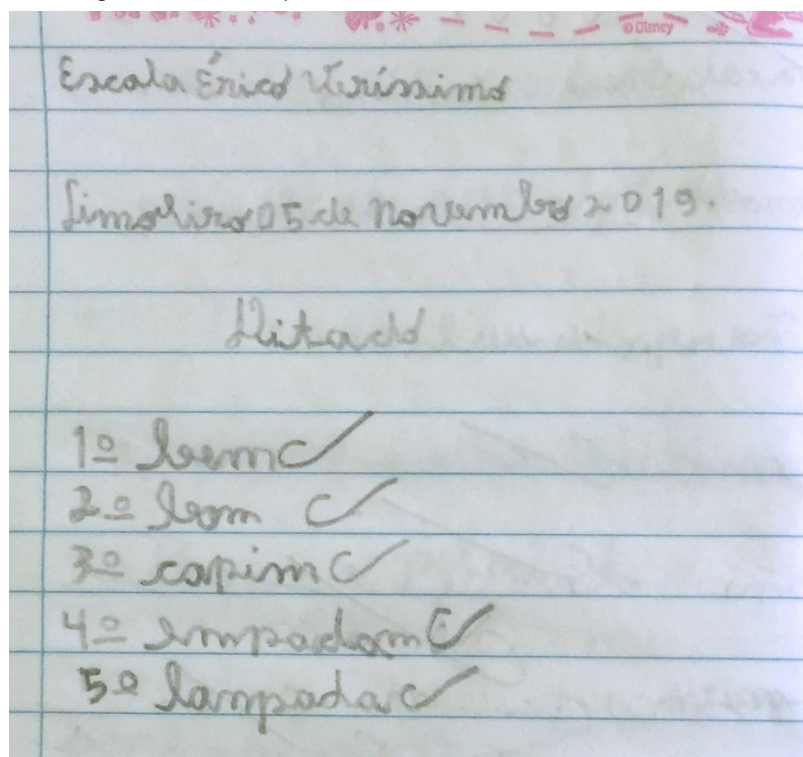 ©Disney
Escola Érico Veríssimo
Limoeiro 05 de novembro 2019.
Ditado
1º bem C
2º bom C
3º capim C
4º empadam C
5º lampada C